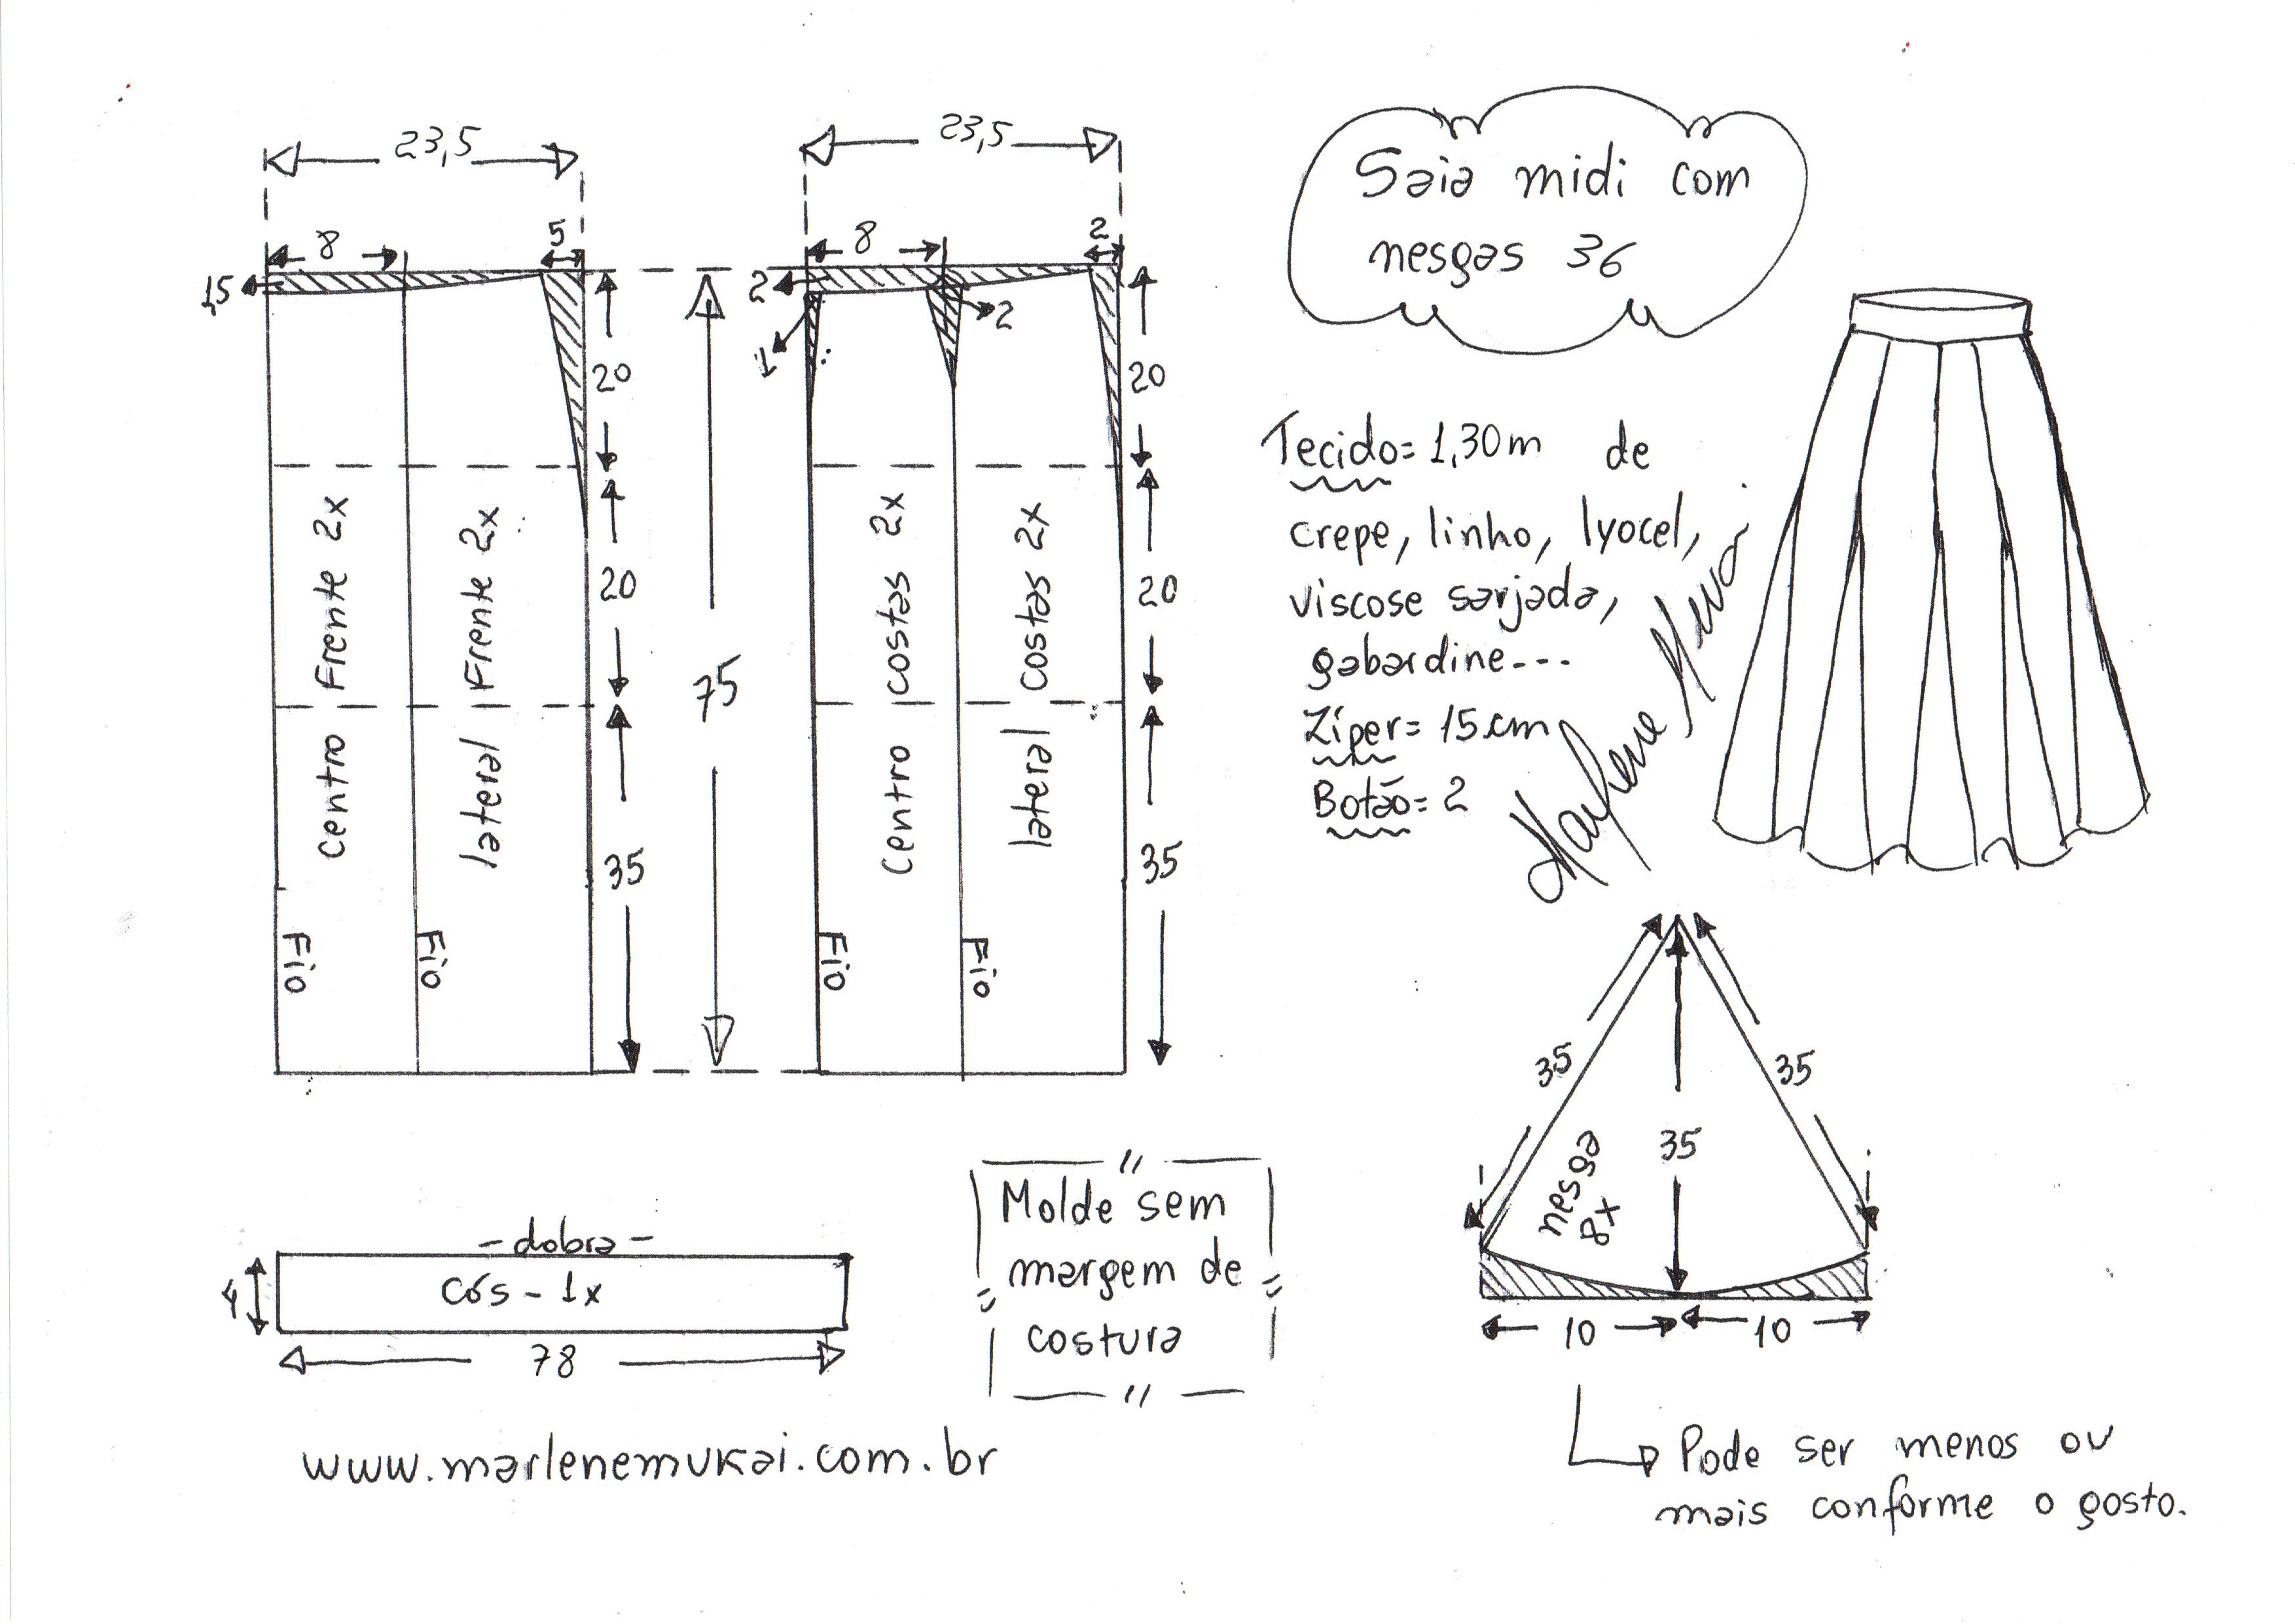 23,5
8
5
1,5
20
20
35
Centro Frente 2x
lateral Frente 2x
Fio
Fio
75
23,5
8
2
2
1
2
20
20
35
Centro costas 2x
lateral costas 2x
Fio
Fio
Saia midi com
nesgas 36
Tecido= 1,30m de
crepe, linho, lyocel,
viscose sarjada,
gabardine---
Zíper= 15cm
Botão= 2
35
35
35
nesga
8x
10
10
Pode ser menos ou
mais conforme o gosto.
- dobra -
4
cós - 1x
78
Molde sem
margem de
costura
www.marlenemukai.com.br